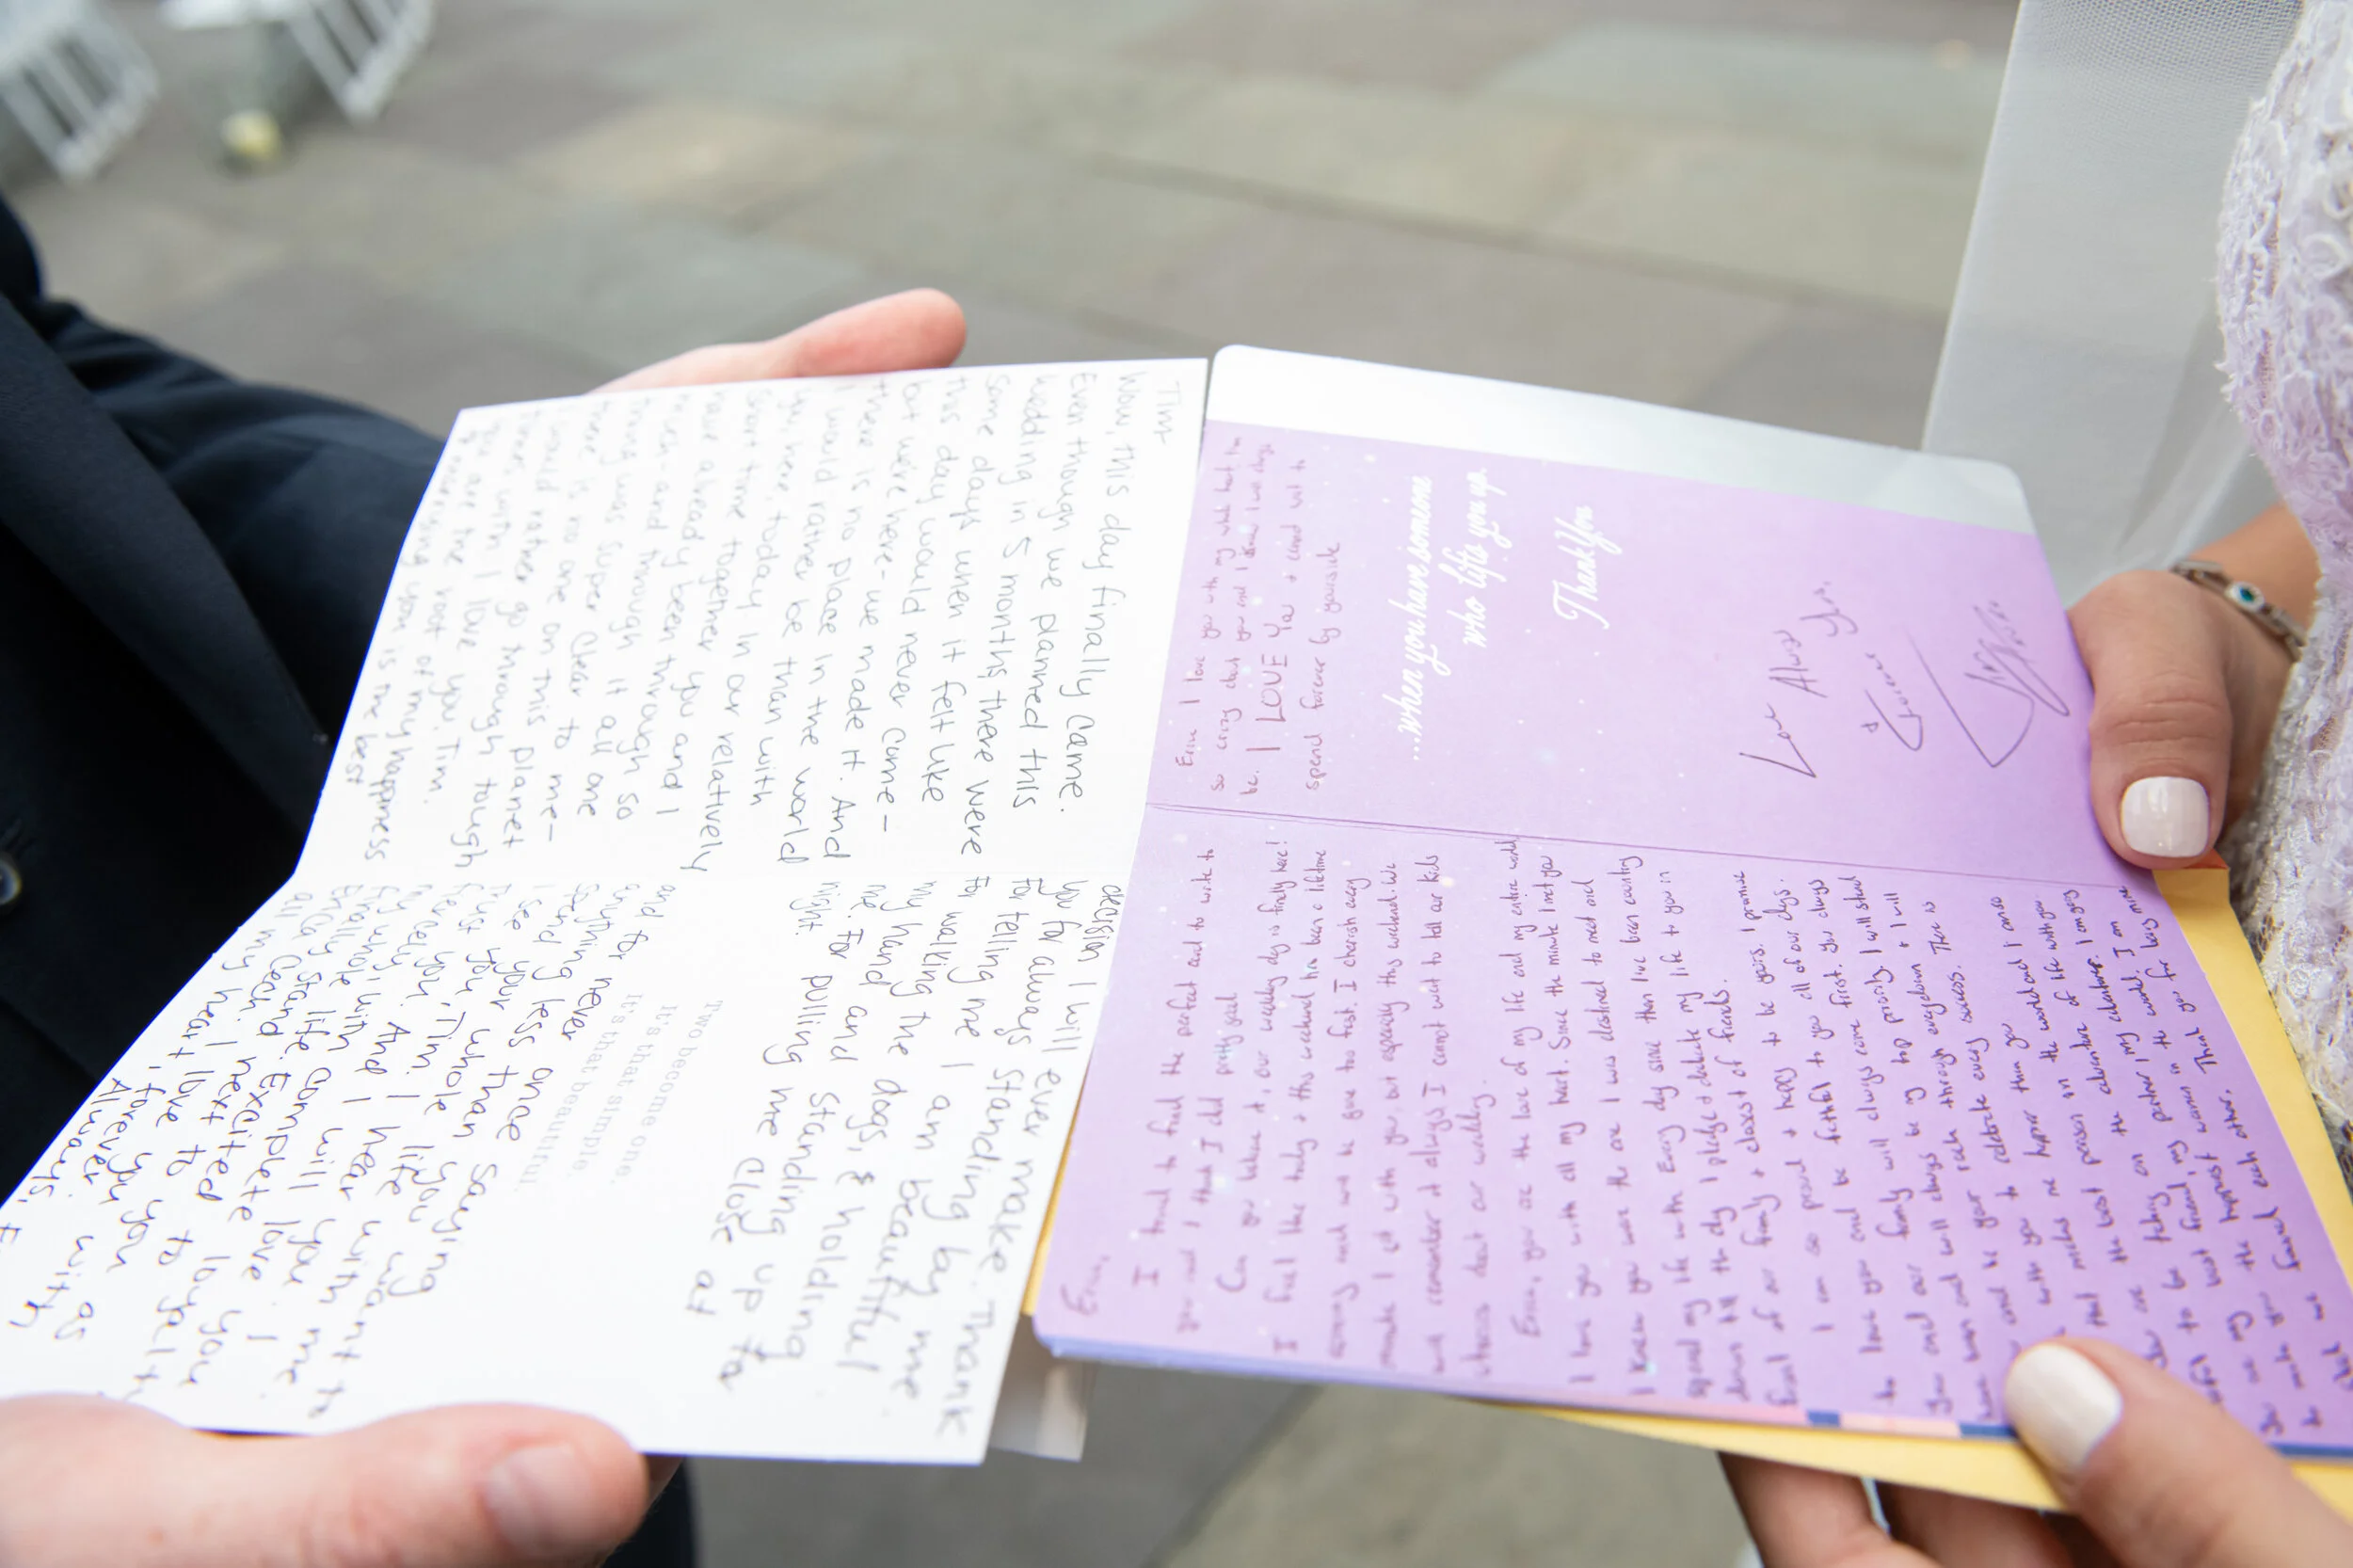 Tim-
Wow, this day finally came.
Even though we planned this
wedding in 5 months there were
some days when it felt like
this day would never come -
but we're here - we made it. And
there is no place in the world
I would rather be than with
you here, today. In our relatively
short time together you and I
have already been through
much - and through it all one
thing was super clear to me -
there is no one on this planet
I would rather go through tough
times with. I love you, Tim.
You are the root of my happiness
marrying you is the best
decision I will ever make. Thank
you for always standing by me
for telling me I am beautiful
for walking the dogs, & holding
my hand and standing up for
me. For pulling me close at
night.
and for never once saying
anything less than you want to
spend your whole life with me
I see you, Tim. I hear you. I
trust you. And I will love you
fiercely, with complete loyalty
my whole life. Excited to
finally stand next to you
Erica Cean. I love you
all my heart, forever with
Always, E
Two become one.
It's that simple.
It's that beautiful.
Erica,
I tried to find the perfect card to write to
you and I think I did pretty good
Can you believe it, our wedding day is finally here!
I feel like today & this weekend has been a lifetime
coming and will be gone too fast. I cherish every
minute I get with you, but especially this weekend. We
will remember it always I cannot wait to tell our kids
stories about our wedding.
Erica, you are the love of my life and my entire world
I love you with all my heart. Since the minute I met you
I knew you were the one I was destined to meet and
spend my life with. Every day since then I've been counting
down till this day I pledge & dedicate my life to you in
front of our family & closest of friends.
I am so proud & happy to be yours. I promise
to love you and be faithful to you all of our days.
You and our family will always come first. You always
have been and will always be my top priority. I will stand
and be your rock through everydown & I will
with you to celebrate every success. There is
makes me happier than you
that the best person in the world and I
are taking on the adventure of life with you
to be my partner I my
best friend, my woman in the world. I am
you are my the happiest Thank you for being mine
to make found each other.
that we
Erica I love you with my whole heart I'm
so crazy about you and I know I will always
be. I LOVE You & cannot wait to
spend forever by your side
...when you have someone
who lifts you up.
Thank You
Love Always
& forever